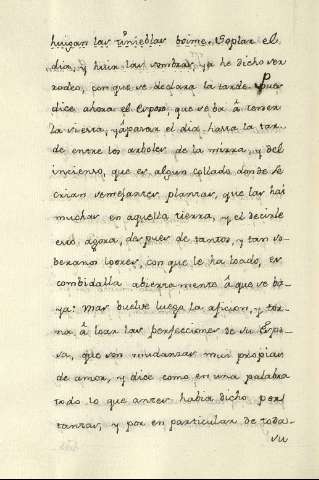 huigan las tinieblas boime. Soplar el
dia, y huir las sombras, ya he dicho ser
rodeo, con que se declara la tarde. Pues
dice ahora el Esposo, que se ba â tener
la siesta, y âpasar el dia, hasta la tar-
de entre los arboles de la mirra, y del
incienso, que es algun collado donde se
crian semejantes plantas, que las hai
muchas en aquella tierra, y el decirle
esto agora, despues de tantos, y tan so-
beranos loores, con que le ha loado, es
combidalla abiertamente â que se ba-
ya: Mas buelve luego la aficion, y tor-
na â loar las perfecciones de su Espo-
sa, que son mudanzas mui propias
de amor, y dice como en una palabra
todo lo que antes habia dicho por
tantas, y por en particular de toda
su